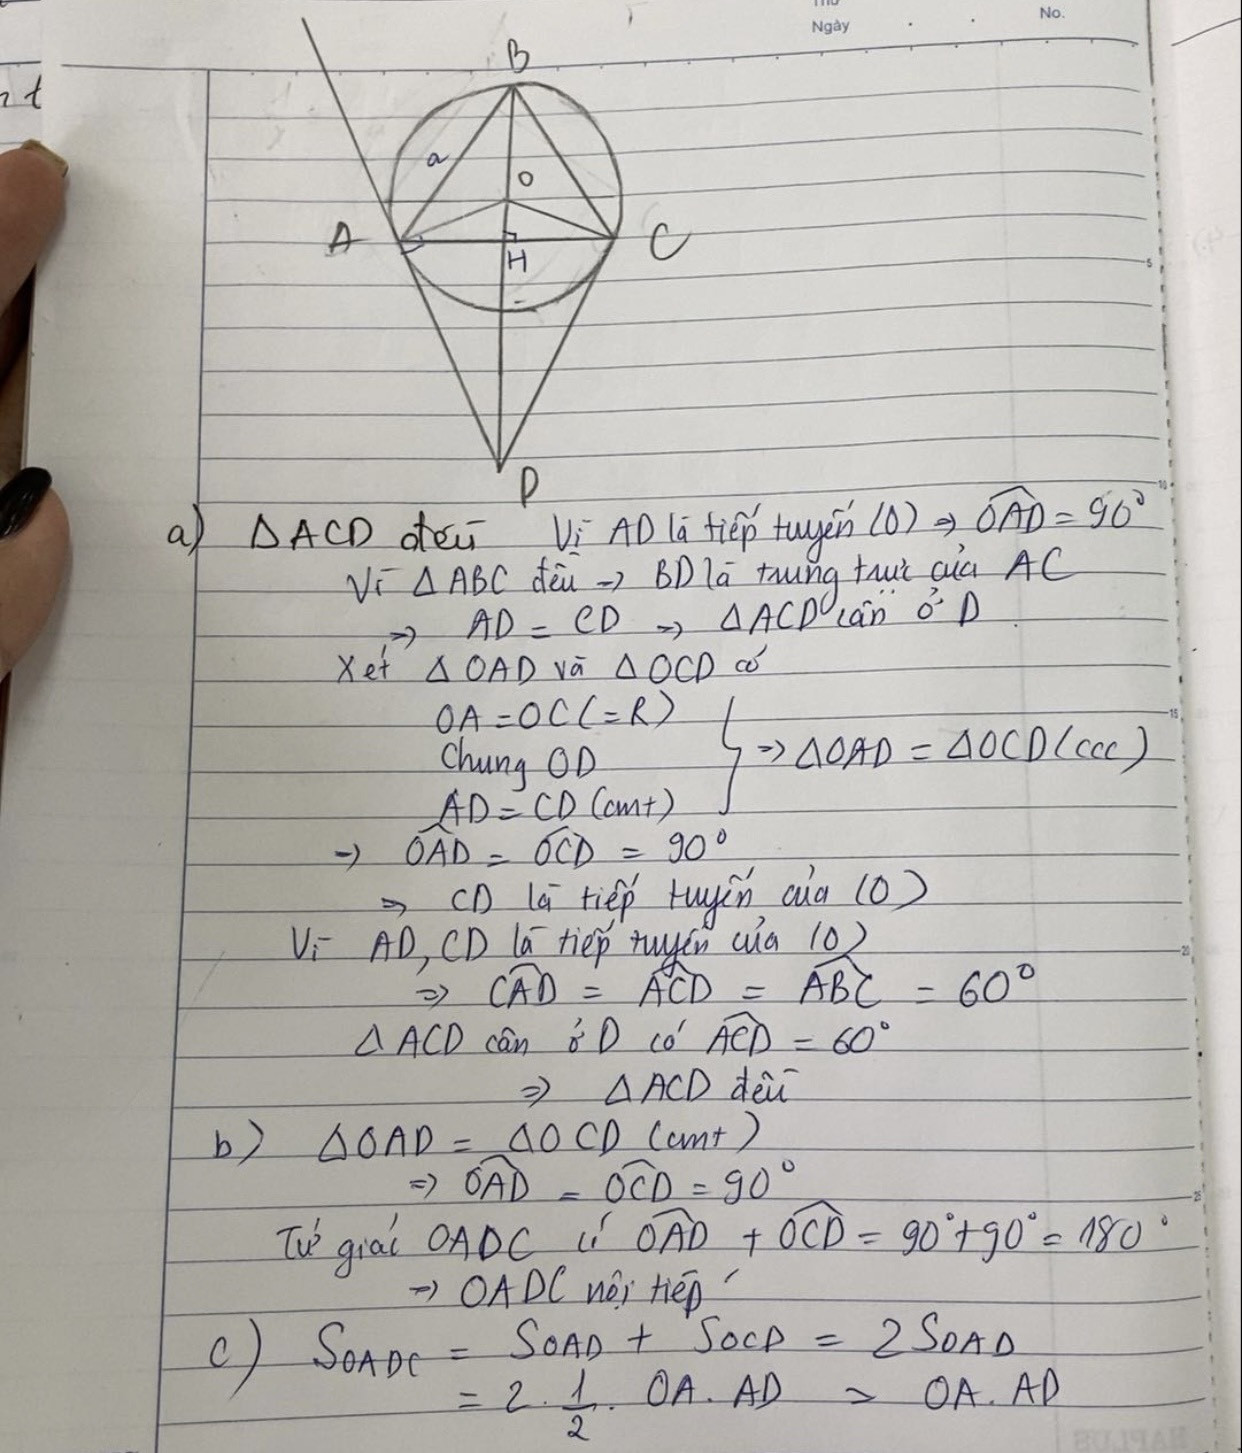 Thứ
Ngày
No.
n t
B
a
O
A
H
C
D
5
10
a) ΔACD đều Vì AD là tiếp tuyến (O) => OAD = 90°
Vì ΔABC đều => BD là trung trực của AC
=> AD = CD => ΔACD cân ở D
Xét ΔOAD và ΔOCD có
OA = OC (=R)
15
Chung OD => ΔOAD = ΔOCD (ccc)
AD = CD (cmt)
=> OAD = OCD = 90°
=> CD là tiếp tuyến của (O)
Vì AD, CD là tiếp tuyến của (O)
20
=> CAD = ACD = ABC = 60°
ΔACD cân ở D có ACD = 60°
=> ΔACD đều
b) ΔOAD = ΔOCD (cmt)
=> OAD = OCD = 90°
25
Tứ giác OADC có OAD + OCD = 90° + 90° = 180°
=> OADC nội tiếp
c) SOADC = SOAD + SOCD = 2SOAD
= 2 . 1/2 . OA . AD = OA . AD